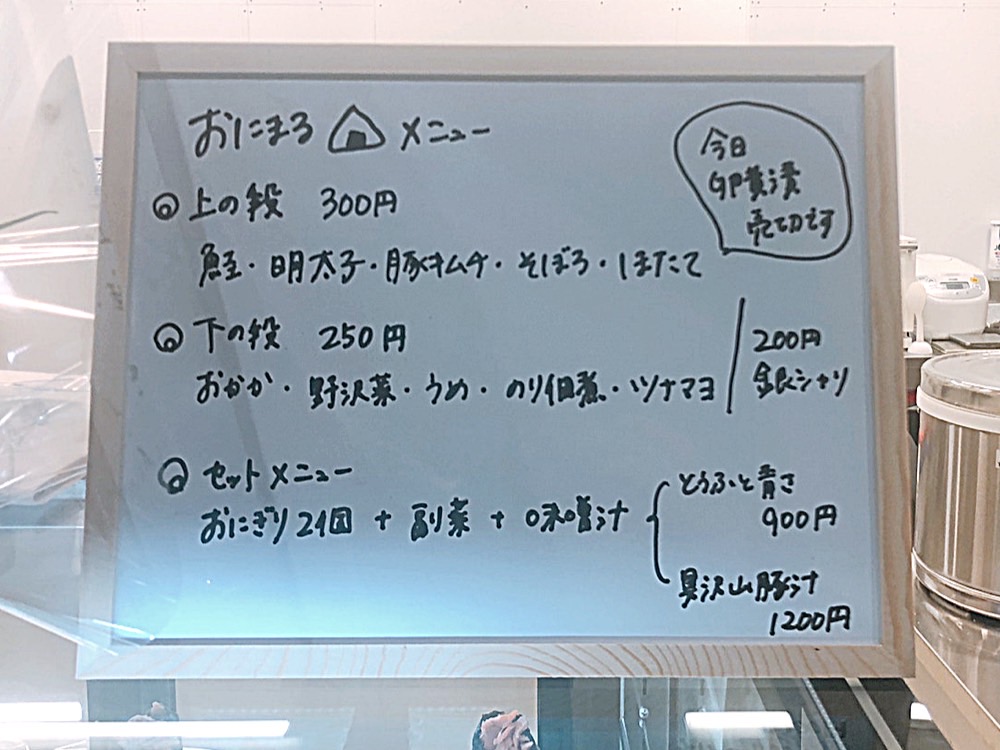 おにまる メニュー
今日
卵黄漬
売切です
◎ 上の段 300円
鮭・明太子・豚キムチ・そぼろ・ほたて
◎ 下の段 250円
おかか・野沢菜・うめ・のり佃煮・ツナマヨ
200円
銀シャリ
◎ セットメニュー
おにぎり2個 + 副菜 + 味噌汁
とうふと青さ
900円
具沢山豚汁
1200円